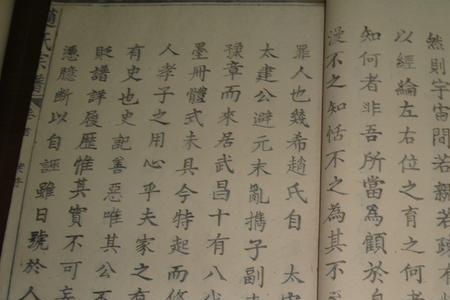 然則宇宙間若親若疎有
以經綸左右位之育之何
知何者非吾所當為顧於
漫不之知恬不之為其不
罪人也幾希趙氏自 太
太建公避元末亂攜子副
豫章而來居武昌十有八
墨冊體式未具今特起而修
人孝子之用心乎夫家之有
有史也史記善惡唯其公
貶譜詳履歷惟其實不可妄
憑臆斷以自誣雖日號於人
趙氏宗譜
卷首